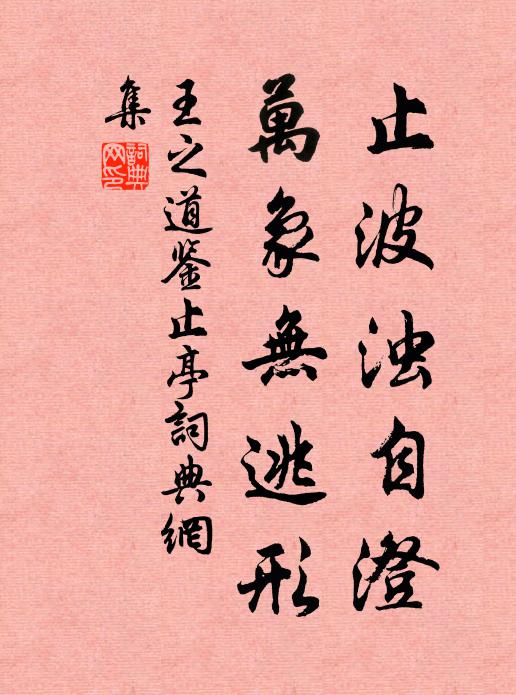 止波浊自澄
萬象無逃形
王之道鉴止亭詞典網
集
詞典网印